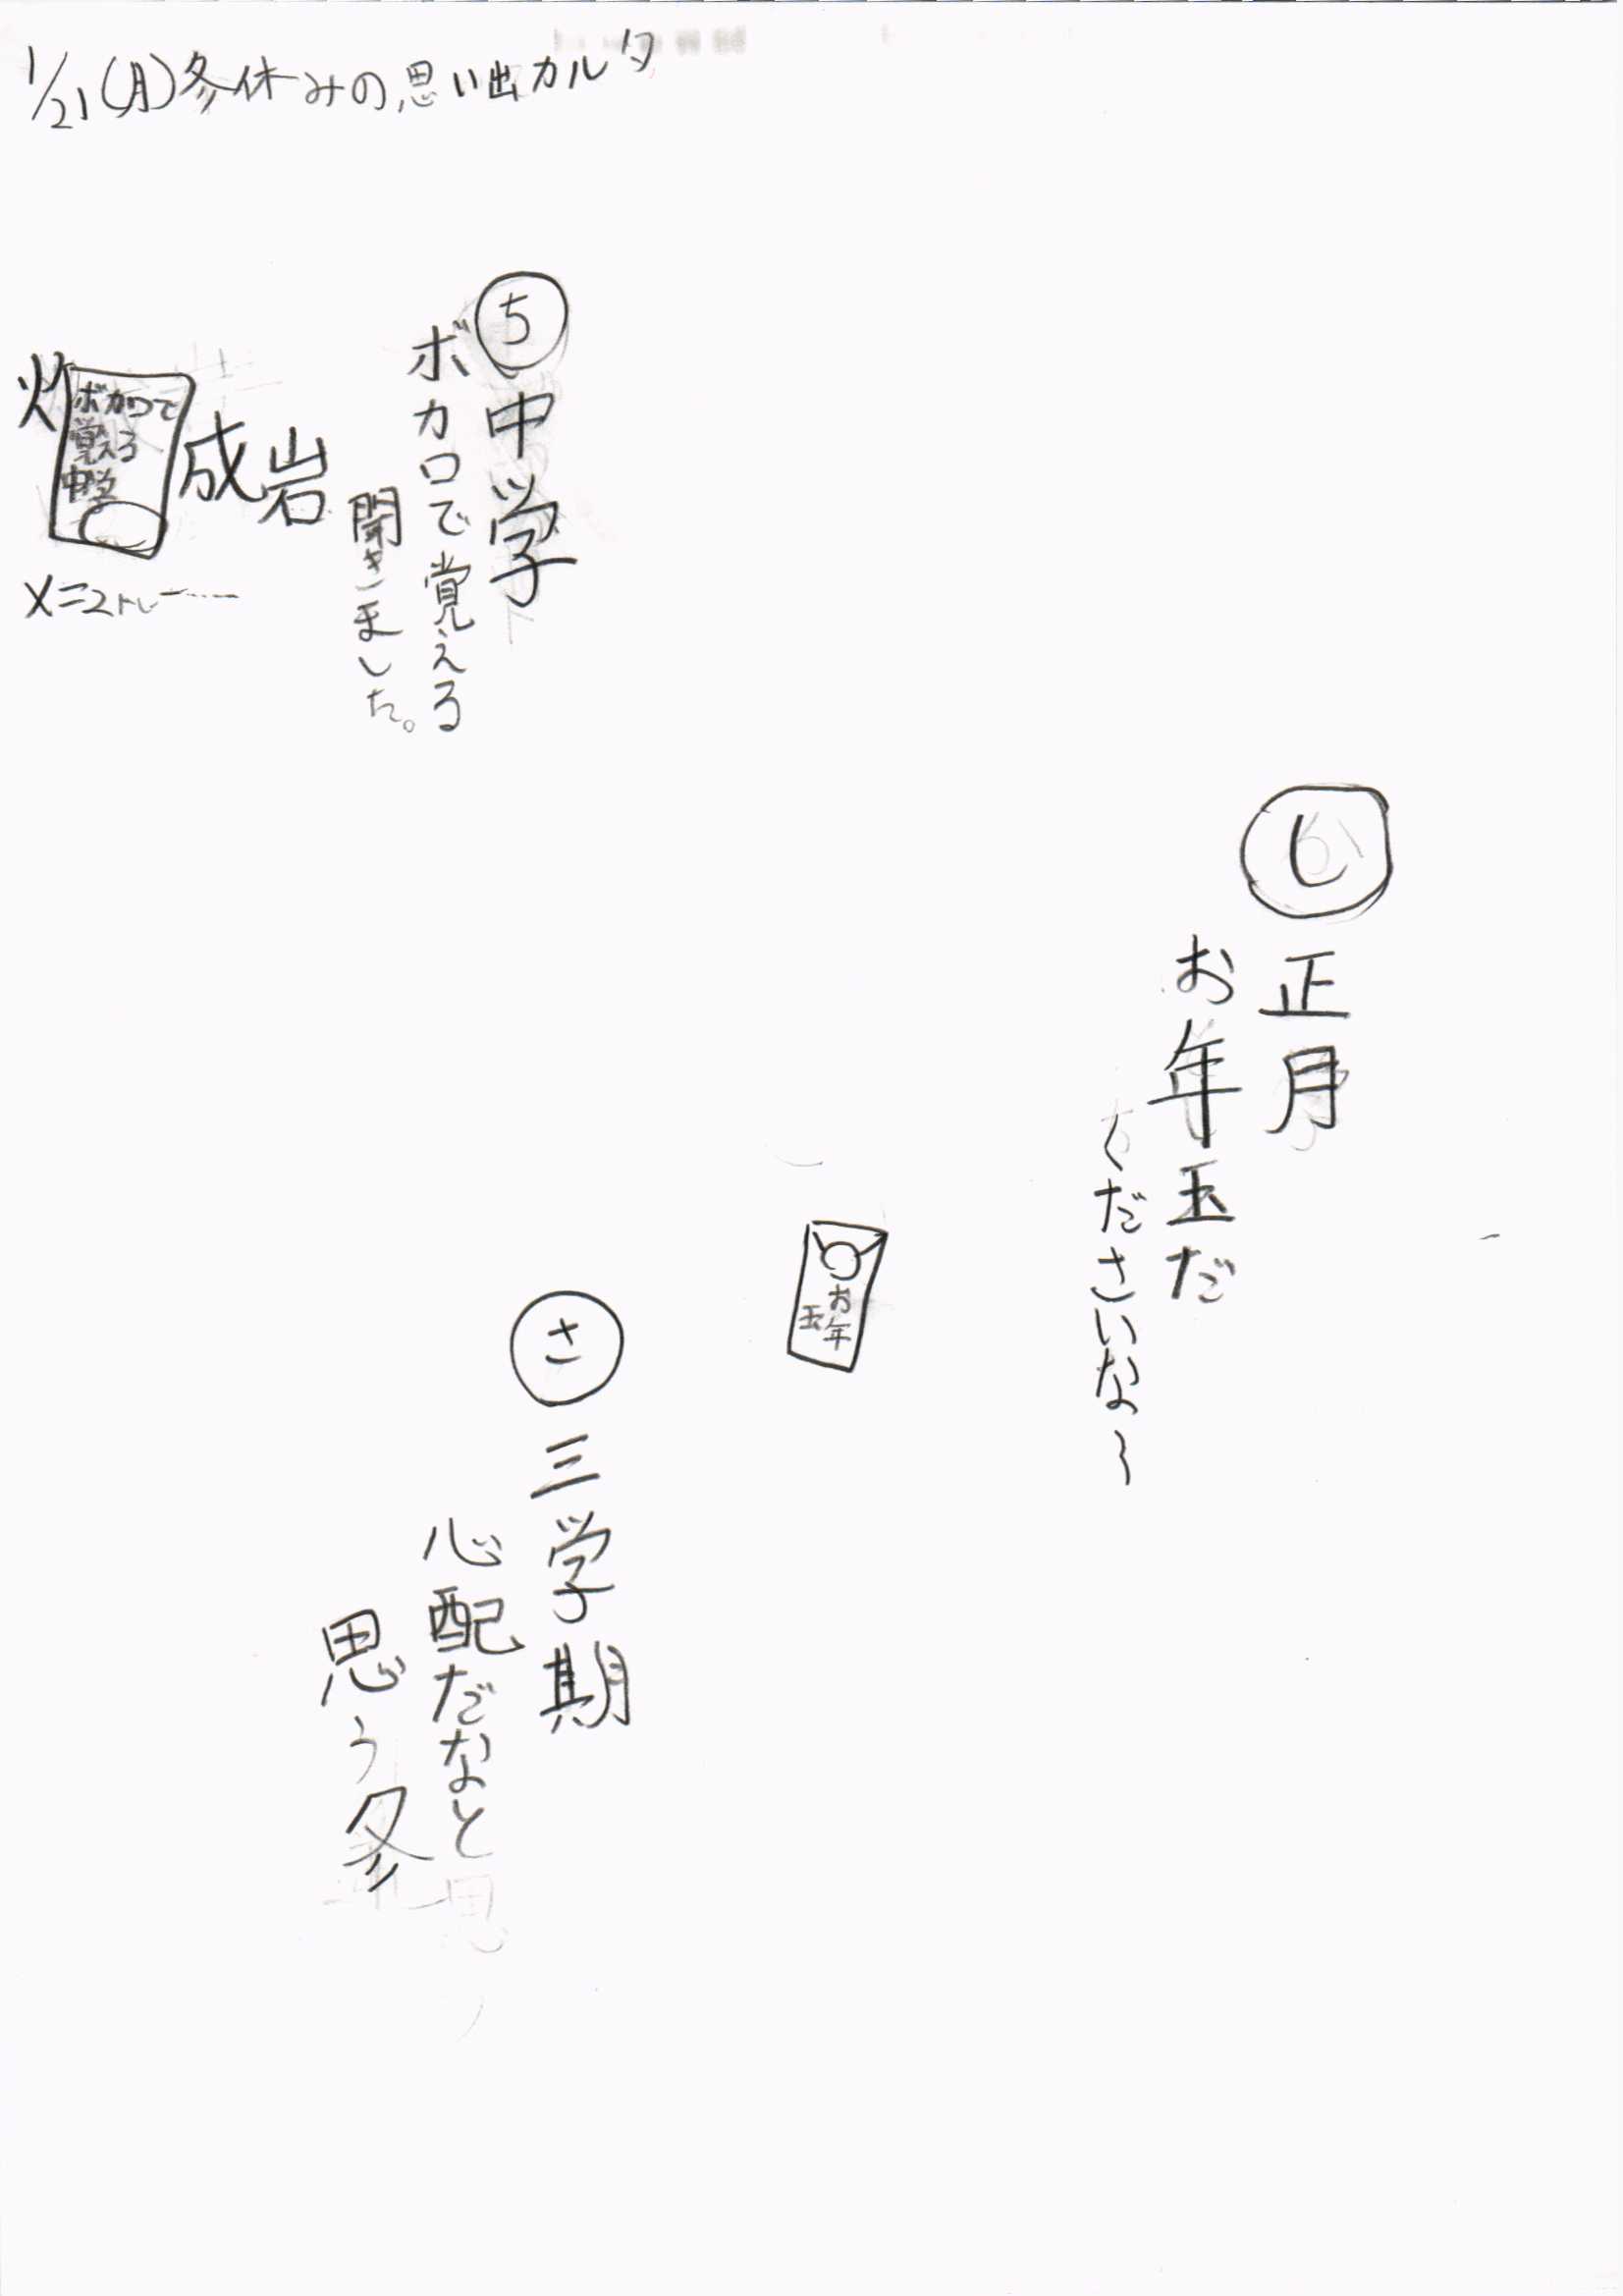 1/21(月)冬休みの思い出カルタ
ち
中学
ボカロで覚える
開きました。
火 成岩
ボカロで
覚える
中学
X=2トレー……
し
正月
お年玉だ
くださいな〜
お年
玉
さ
三学期
心配だなと
思う冬